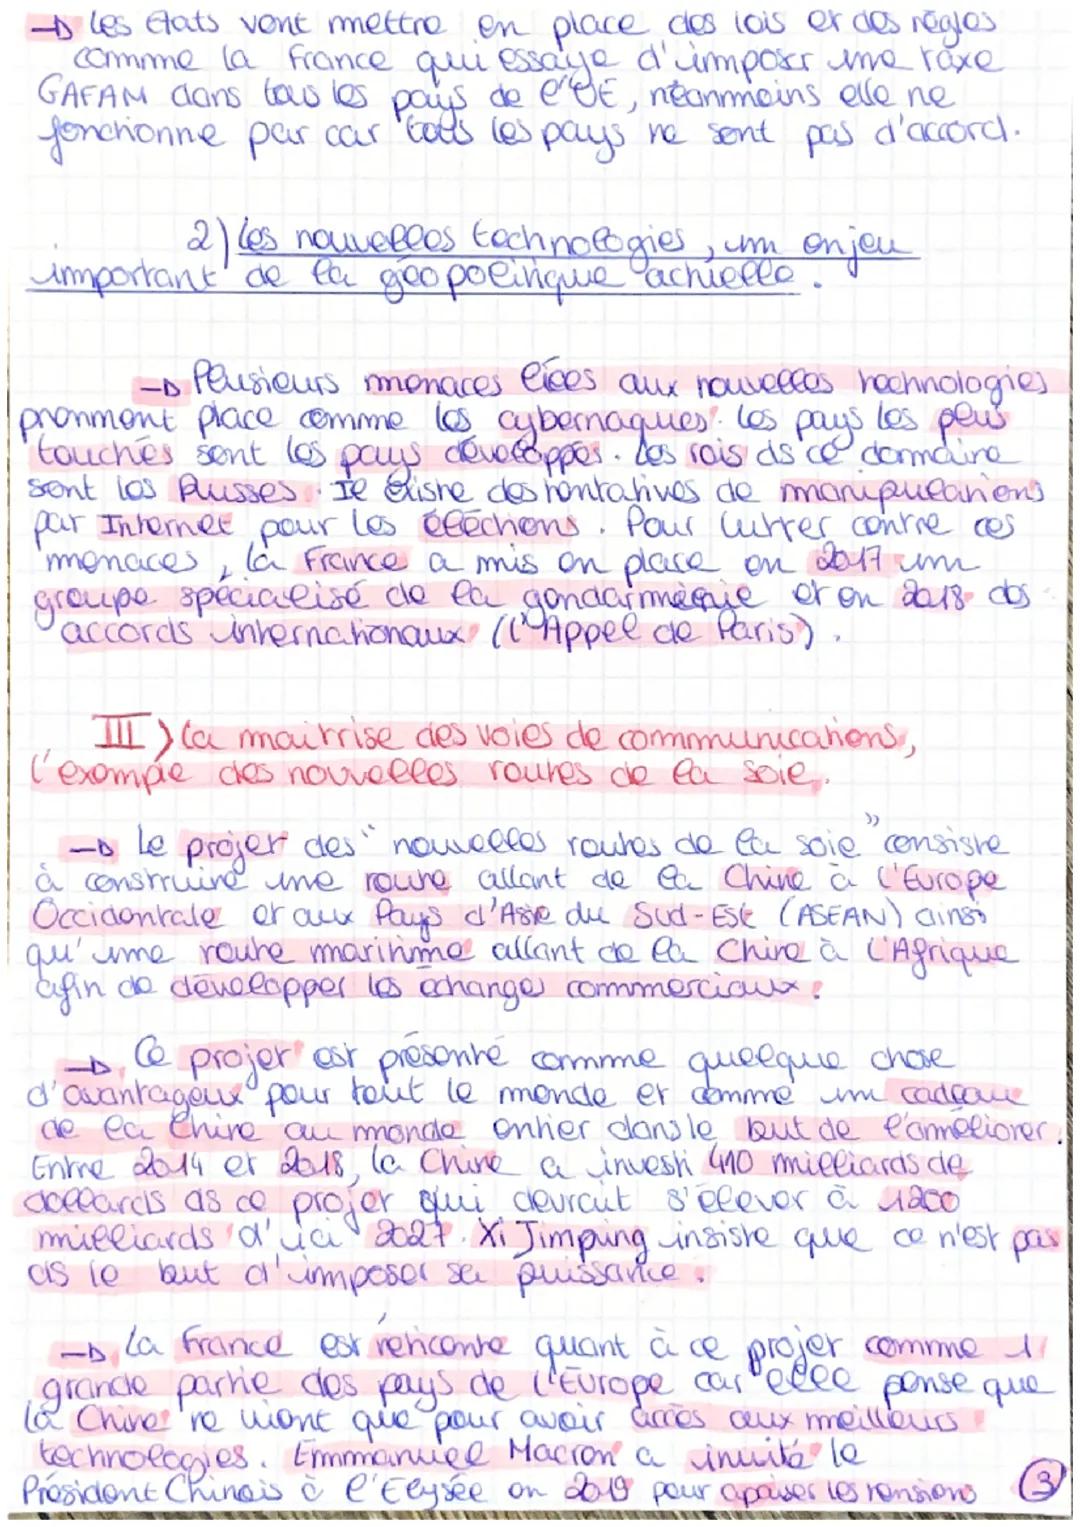 → Les États vont mettre en place des lois et des règles
comme la France qui essaye d'imposer une taxe
GAFAM dans tous les pays de l'UE, néanmoins elle ne
fonctionne par car tous les pays ne sont pas d'accord.
2) Les nouvelles technologies, un enjeu
important de la géopolitique actuelle.
→ Plusieurs menaces liées aux nouvelles technologies
prennent place comme les cyberattaques. Les pays les plus
touchés sont les pays développés. Les rois ds ce domaine
sont les Russes. Il existe des tentatives de manipulations
par Internet pour les éléctions. Pour lutter contre ces
menaces, la France a mis en place en 2017 un
groupe spécialisé de la gendarmerie et en 2018 des
accords internationaux (l'Appel de Paris).
III) La maitrise des voies de communications,
l'exemple des nouvelles routes de la soie.
→ Le projet des "nouvelles routes de la soie" consiste
à construire une route allant de la Chine à l'Europe
Occidentale et aux Pays d'Asie du Sud-Est (ASEAN) ainsi
qu'une route maritime allant de la Chine à l'Afrique
afin de développer les échanges commerciaux.
→ Ce projet est présenté comme quelque chose
d'avantageux pour tout le monde et comme un cadeau
de la Chine au monde entier dans le but de l'améliorer.
Entre 2014 et 2018, la Chine a investi 410 milliards de
dollards ds ce projet qui devrait s'élever à 1200
milliards d'ici 2027. Xi Jimping insiste que ce n'est pas
ds le but d'imposer sa puissance.
→ La France est réticente quant à ce projet comme 1
grande partie des pays de l'Europe car elle pense que
la Chine ne vient que pour avoir accès aux meilleurs
technologies. Emmanuel Macron a invité le
Président Chinois à l'Elysée en 2019 pour apaiser les tensions
3